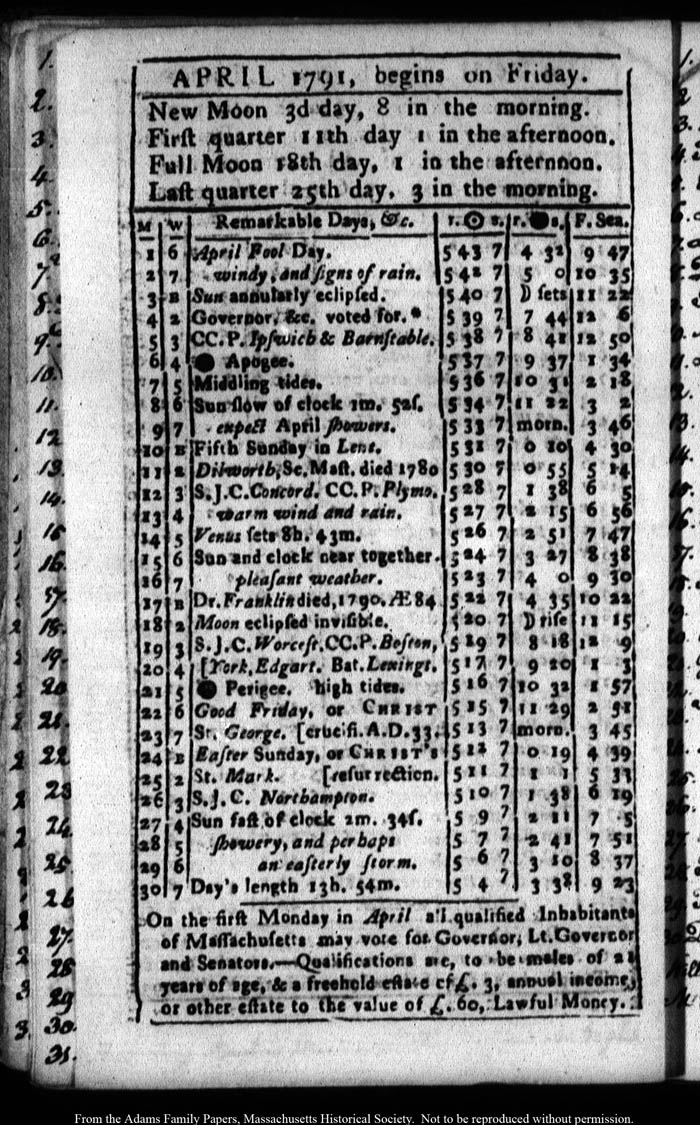 APRIL 1791, begins on Friday.
New Moon 3d day, 8 in the morning.
Firſt quarter 11th day 1 in the afternoon.
Full Moon 18th day, 1 in the afternnon.
Laſt quarter 25th day, 3 in the morning.
M W Remarkable Days, &c. r. ☉ s. r. ● s. F. Sea.
1 6 April Fool Day. 5 43 7 4 32 9 47
2 7 windy, and ſigns of rain. 5 42 7 5 0 10 35
3 B Sun annularly eclipſed. 5 40 7 D ſets 11 22
4 2 Governor, &c. voted for.* 5 39 7 7 44 12 6
5 3 CC. P. Ipſwich & Barnſtable. 5 38 7 8 41 12 50
6 4 ● Apogee. 5 37 7 9 37 1 34
7 5 Middling tides. 5 36 7 10 31 2 18
8 6 Sun ſlow of clock 1m. 52ſ. 5 34 7 11 22 3 2
9 7 expect April ſhowers. 5 33 7 morn. 3 46
10 B Fifth Sunday in Lent. 5 31 7 0 10 4 30
11 2 Dilworth, Sc. Maſt. died 1780 5 30 7 0 55 5 14
12 3 S.J.C. Concord. CC. P. Plymo. 5 28 7 1 38 6 5
13 4 warm wind and rain. 5 27 7 2 15 6 56
14 5 Venus ſets 8h. 43m. 5 26 7 2 51 7 47
15 6 Sun and clock near together. 5 24 7 3 27 8 38
16 7 pleaſant weather. 5 23 7 4 0 9 30
17 B Dr. Franklin died, 1790. Æ 84 5 22 7 4 35 10 22
18 2 Moon eclipſed inviſible. 5 20 7 D riſe 11 15
19 3 S.J.C. Worceſt. CC.P. Boſton, 5 19 7 8 18 12 9
20 4 [York, Edgart. Bat. Lexingt. 5 17 7 9 20 1 3
21 5 ● Perigee. high tides. 5 16 7 10 32 1 57
22 6 Good Friday, or CHRIST 5 15 7 11 29 2 51
23 7 St. George. [crucifi. A.D. 33. 5 13 7 morn. 3 45
24 B Eaſter Sunday, or CHRIST's 5 12 7 0 19 4 39
25 2 St. Mark. [reſurrection. 5 11 7 1 1 5 33
26 3 S.J.C. Northampton. 5 10 7 1 38 6 19
27 4 Sun faſt of clock 2m. 34ſ. 5 9 7 2 11 7 5
28 5 ſhowery, and perhaps 5 7 7 2 41 7 51
29 6 an eaſterly ſtorm. 5 6 7 3 10 8 37
30 7 Day's length 13h. 54m. 5 4 7 3 38 9 23
On the firſt Monday in April all qualified Inhabitants
of Maſſachuſetts may vote for Governor, Lt. Governor
and Senators.—Qualifications are, to be males of 21
years of age, & a freehold eſtate of £. 3, annual income,
or other eſtate to the value of £. 60, Lawful Money.
1.
2.
3.
4.
5.
6.
7.
8.
9.
10.
11.
12
13.
14.
15
16.
17.
18.
19.
20
21.
22
23
24.
25.
26
27.
28
29
30.
31.
From the Adams Family Papers, Massachusetts Historical Society. Not to be reproduced without permission.